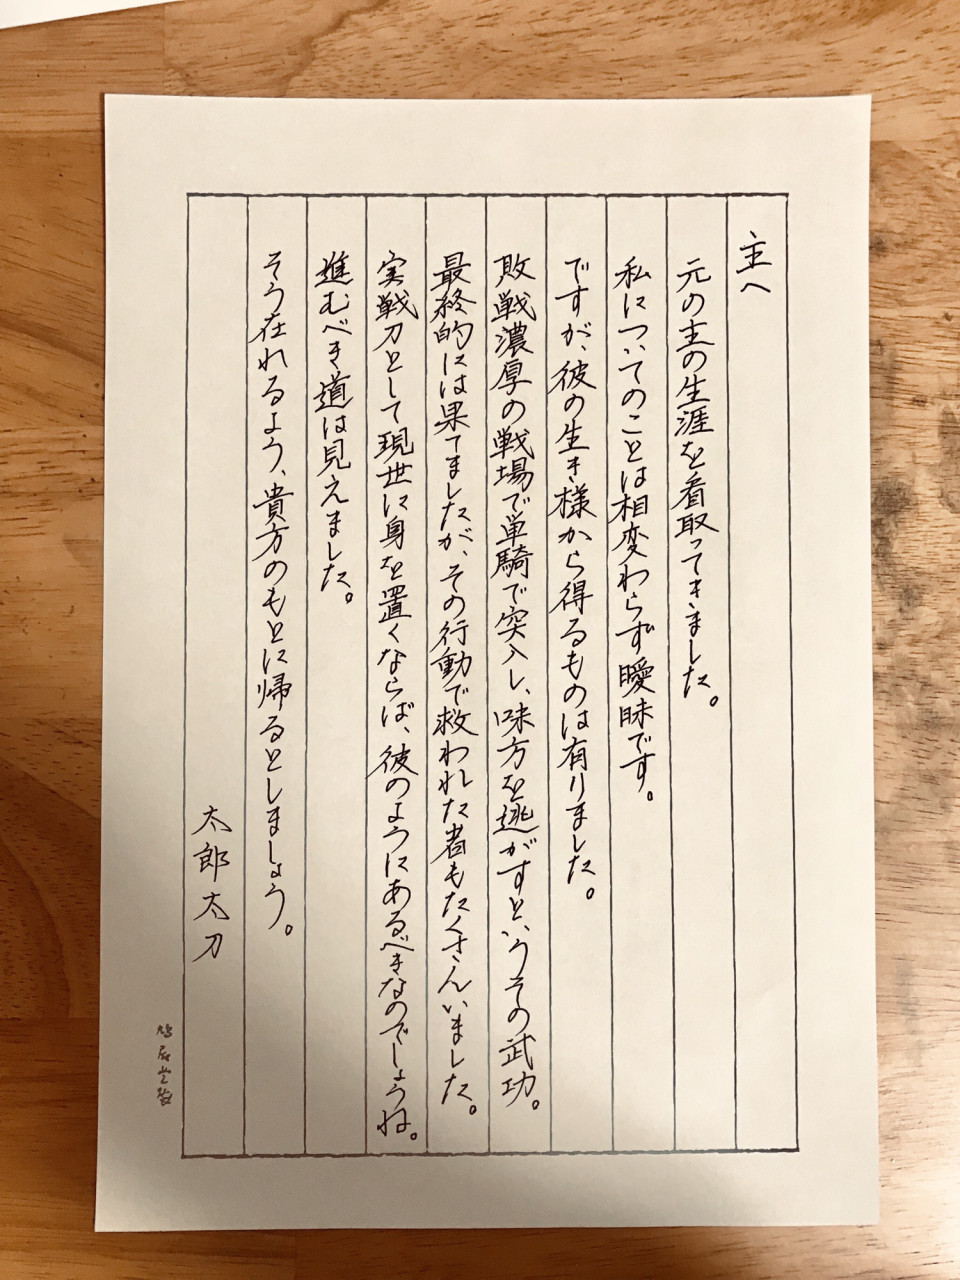 主へ
元の主の生涯を看取ってきました。
私についてのことは相変わらず曖昧です。
ですが、彼の生き様から得るものは有りました。
敗戦濃厚の戦場で単騎で突入し、味方を逃がすというその武功。
最終的には果てましたが、その行動で救われた者もたくさんいました。
実戦刀として現世に身を置くならば、彼のようにあるべきなのでしょうね。
進むべき道は見えました。
そう在れるよう、貴方のもとに帰るとしましょう。
太郎太刀
鳩居堂製